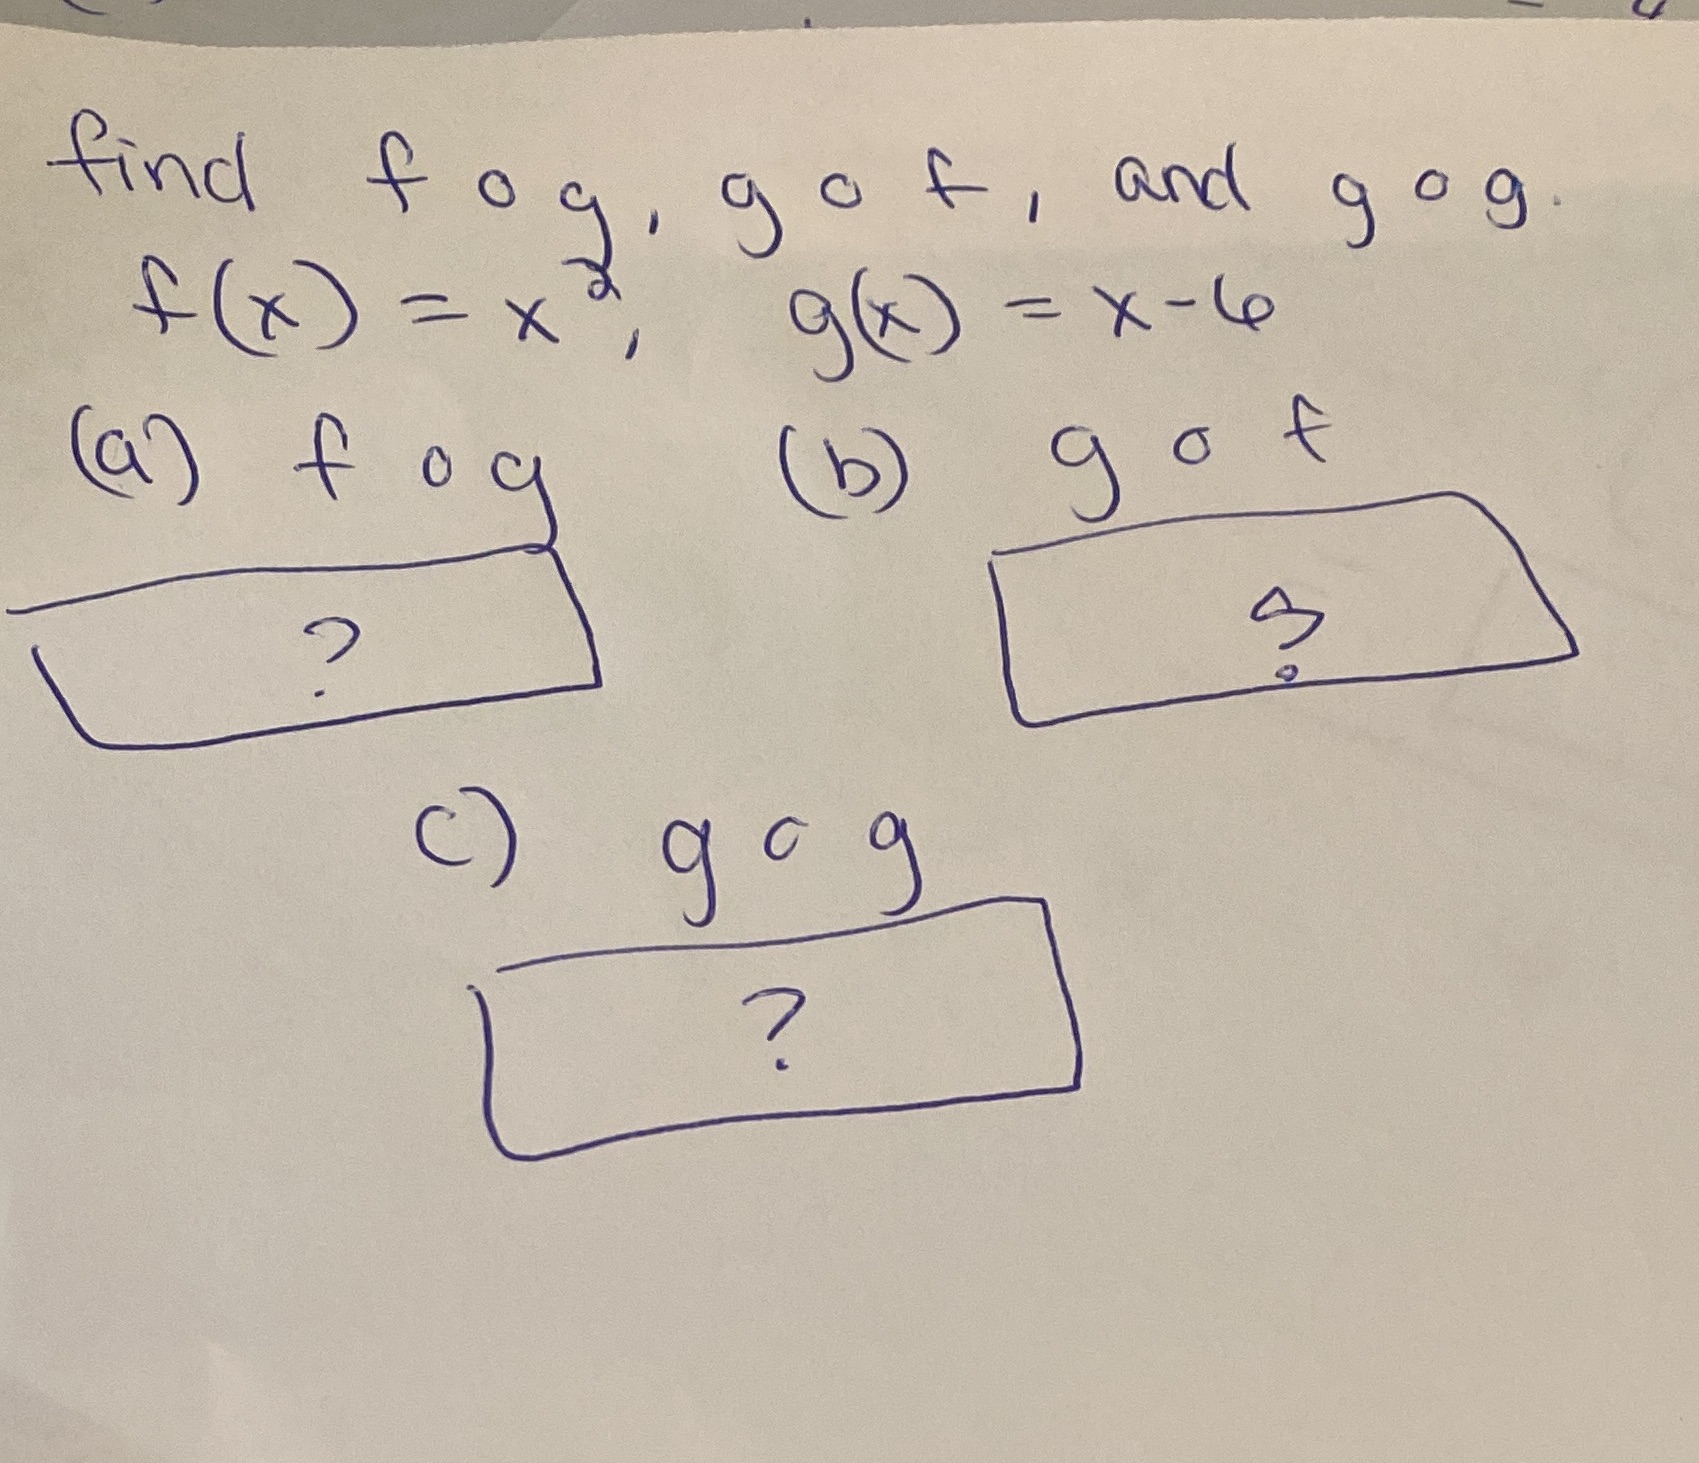 find f o g, g o f, and g o g.
f(x) = x², g(x) = x-6
(a) f o g (b) g o f
? ?
c) g o g
?